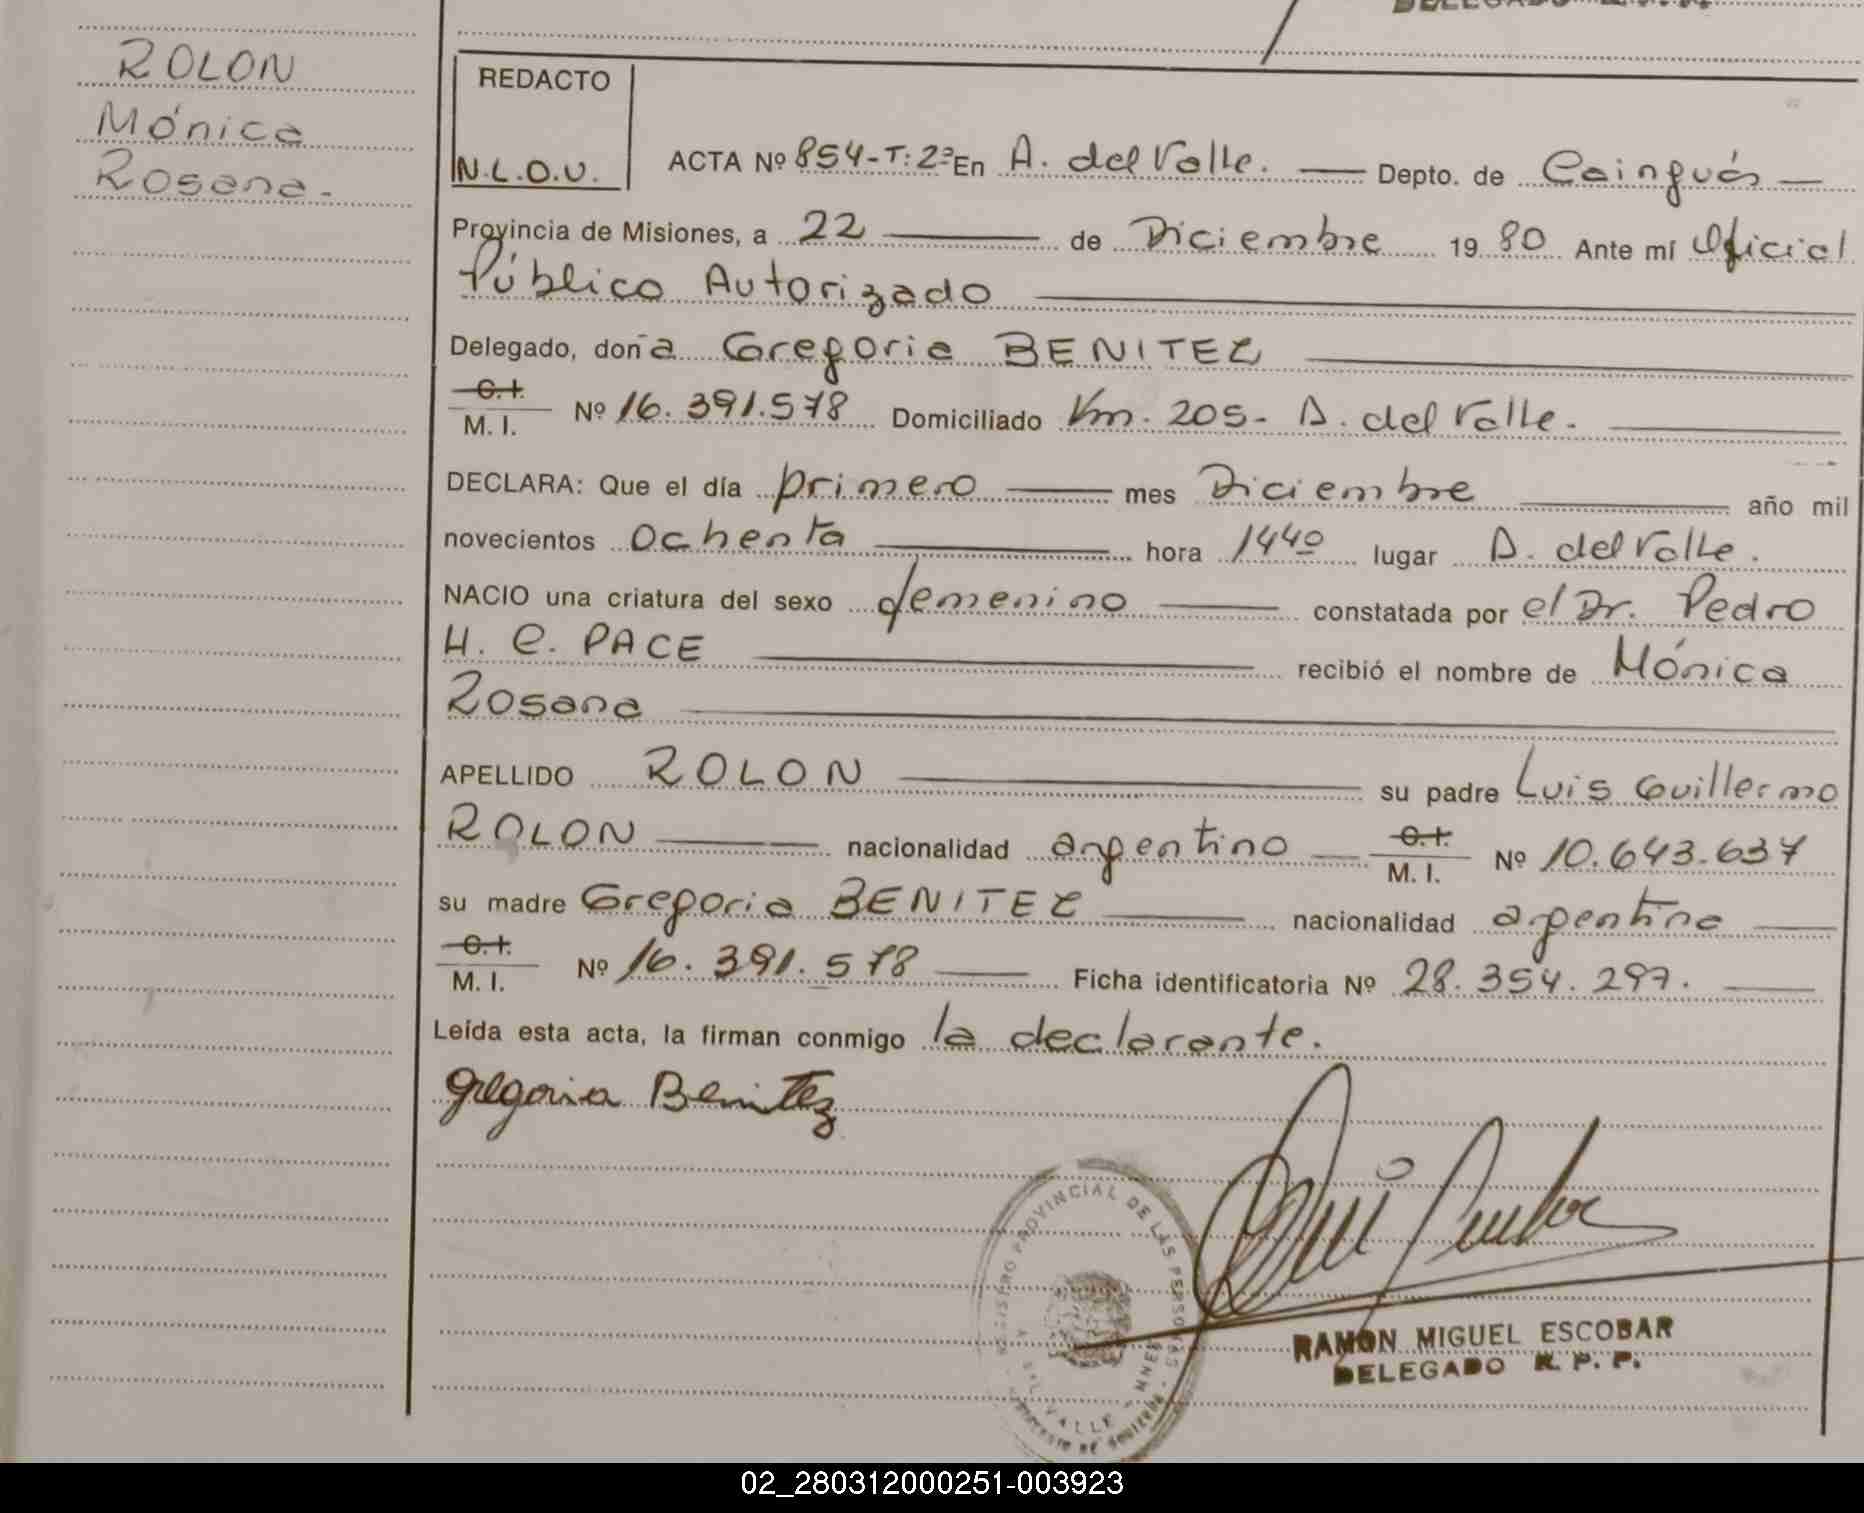 ROLON
Mónica
Rosana.-
REDACTO
N.L.O.V.
ACTA Nº 854-T:2º En A. del Valle. Depto. de Cainguás
Provincia de Misiones, a 22 de Diciembre 19 80 Ante mí Oficial
Público Autorizado
Delegado, doña Gregoria BENITEZ
C.I.
M. I. Nº 16.391.578 Domiciliado Km. 205- A. del Valle.
DECLARA: Que el día primero mes Diciembre año mil
novecientos Ochenta hora 1440 lugar A. del Valle.
NACIO una criatura del sexo femenino constatada por el Dr. Pedro
H. C. PACE recibió el nombre de Mónica
Rosana
APELLIDO ROLON su padre Luis Guillermo
ROLON nacionalidad argentino C.I. M. I. Nº 10.643.637
su madre Gregoria BENITEZ nacionalidad argentina
C.I.
M. I. Nº 16.391.578 Ficha identificatoria Nº 28.354.297.
Leída esta acta, la firman conmigo la declarante.
Gregoria Benitez
REGISTRO PROVINCIAL DE LAS PERSONAS
VALLE
RAMON MIGUEL ESCOBAR
DELEGADO R. P. P.
02_280312000251-003923